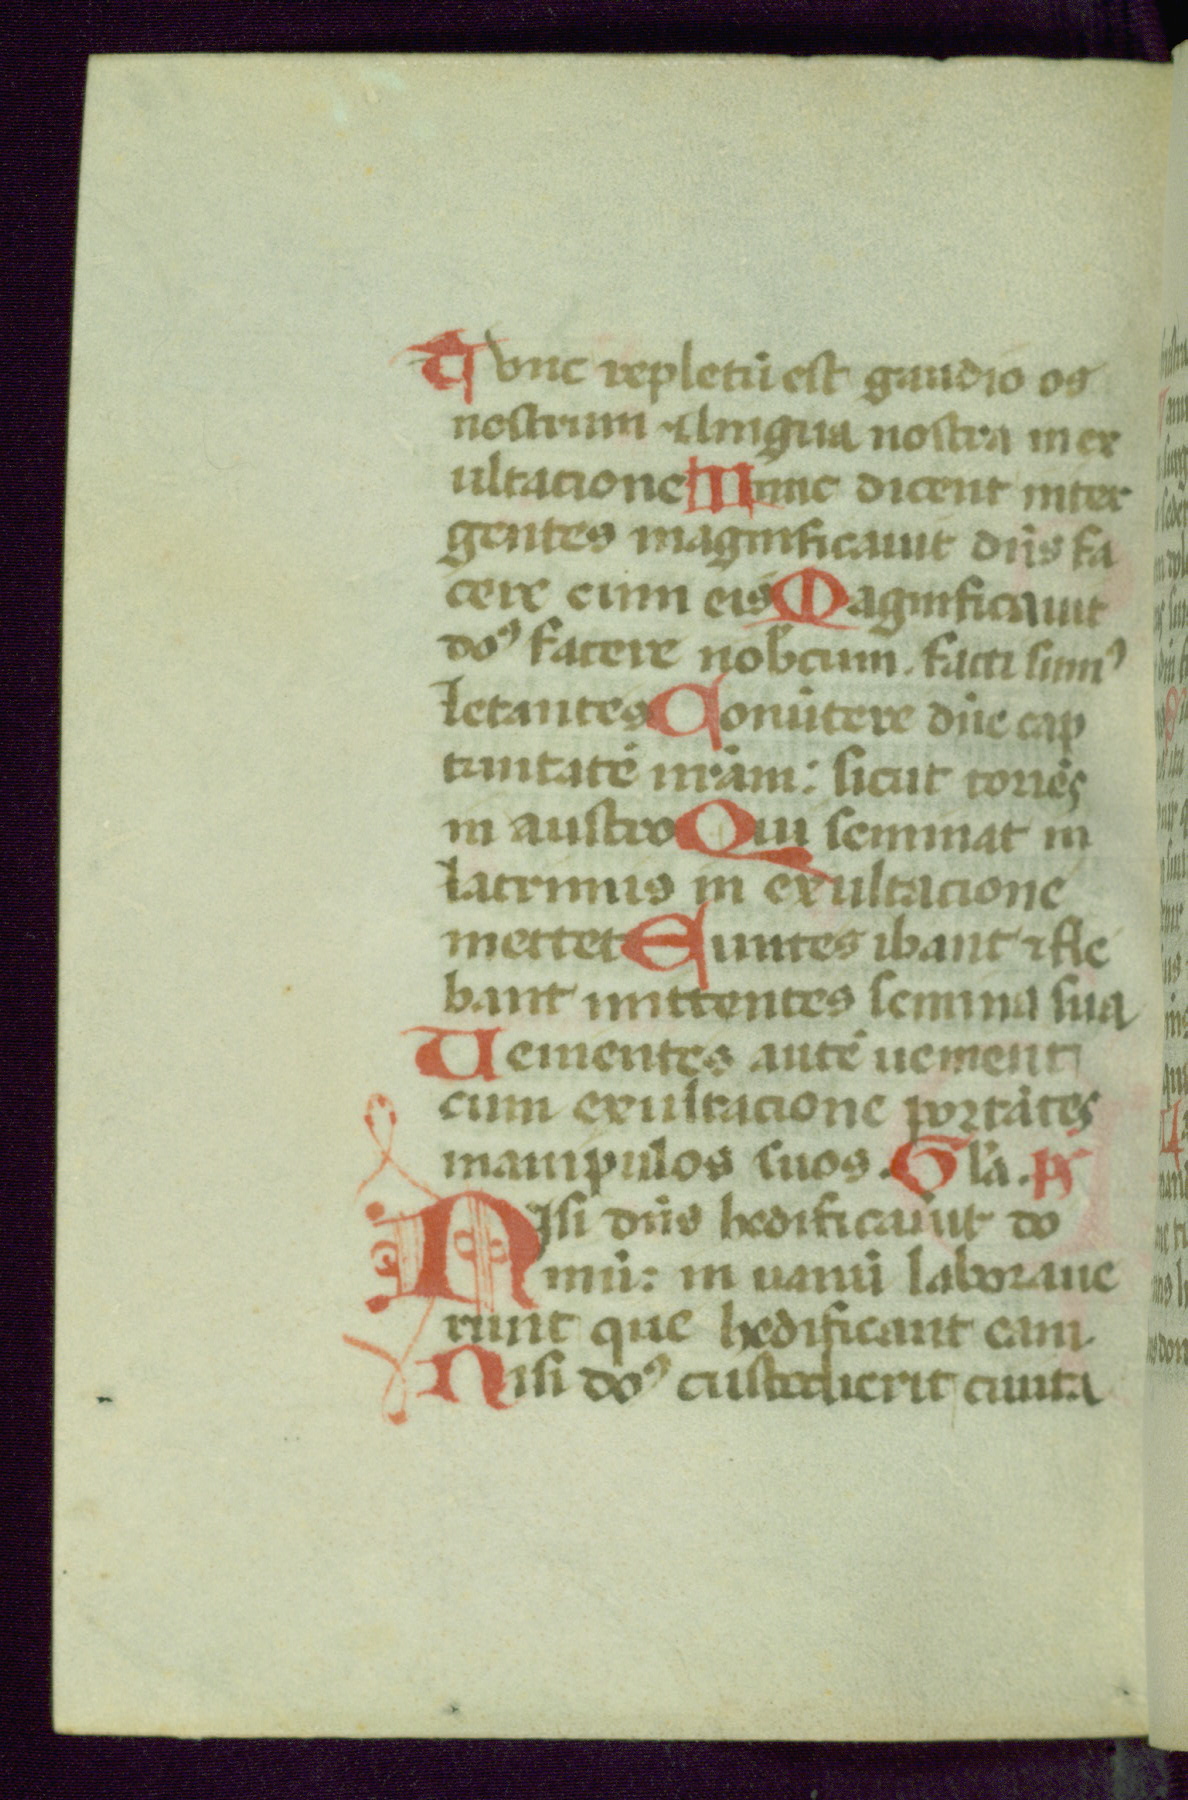 Tunc repletū est gaudio os
nostrum ⁊ lingua nostra in ex
ultacione Nunc dicent inter
gentes magnificauit dn̄s fa
cere cum eis Magnificauit
do⁹ facere nob̄cum. facti sum⁹
letantes Conuītere dn̄e cap
tiuitatē nr̄am: sicut torrēs
in austro Qui seminat in
lacrimis in exultacione
mettet Euntes ibant ⁊ fle
bant mittentes semina sua
Uenientes autē uenient
cum exultacione portātes
manipulos suos. Gl̄a. ps̄
Nisi dn̄s hedificauit do
mū: in uanū laboraue
runt que hedificant eam
Nisi do⁹ custodierit ciuita